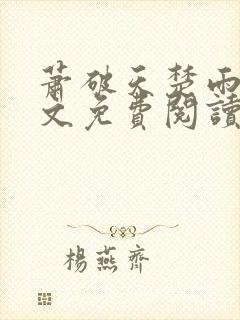 蕭破天楚雨
文免費閱讀
楊燕齊